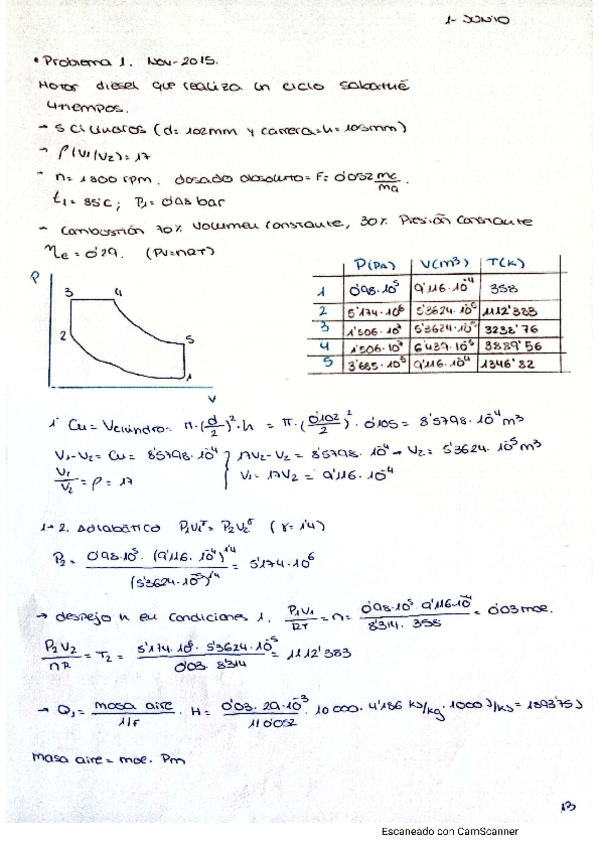 1- JUNIO
• Problema 1. Nov-2015.
Motor diesel que realiza un ciclo sabathé
4 tiempos.
→ 5 cilindros (d= 102mm y carrera=h= 105mm)
→ ρ(V1/V2)= 17
- n= 1800 rpm. dosado absoluto= F= 0'052 mc/ma.
t1= 85ºC; P1= 0'98 bar
- Combustión 70% Volumen constante, 30% Presión constante
ηe= 0'29. (PV=nRT)
P(Pa) V(m³) T(K)
1 0'98·10⁵ 9'116·10⁻⁴ 358
2 5'174·10⁶ 5'3624·10⁻⁵ 1112'383
3 1'506·10⁷ 5'3624·10⁻⁵ 3238'76
4 1'506·10⁷ 6'439·10⁻⁵ 3889'56
5 3'685·10⁵ 9'116·10⁻⁴ 1346'82
P
3 4
2
5
1
V
1º Cu= Vcilindro= π·(d/2)²·h = π·(0'102/2)²·0'105= 8'5798·10⁻⁴m³
V1-V2= Cu= 8'5798·10⁻⁴ } 17V2-V2= 8'5798·10⁻⁴→ V2= 5'3624·10⁻⁵m³
V1/V2= ρ= 17 } V1= 17V2= 9'116·10⁻⁴
1-2. Adiabático P1V1^γ= P2V2^γ (γ=1'4)
P2= 0'98·10⁵·(9'116·10⁻⁴)^1'4/(5'3624·10⁻⁵)^1'4= 5'174·10⁶
→ despejo n en condiciones 1. P1V1/RT= n= 0'98·10⁵·9'116·10⁻⁴/8'314·358= 0'03 mol.
P2V2/nR= T2= 5'174·10⁶·5'3624·10⁻⁵/0'03·8'314= 1112'383
→ Q1= masa aire/1/F · H= 0'03·29·10⁻³/1/0'052 · 10000·4'186 KJ/kg·1000J/KJ= 1893'75J
masa aire= mol· Pm
13
Escaneado con CamScanner